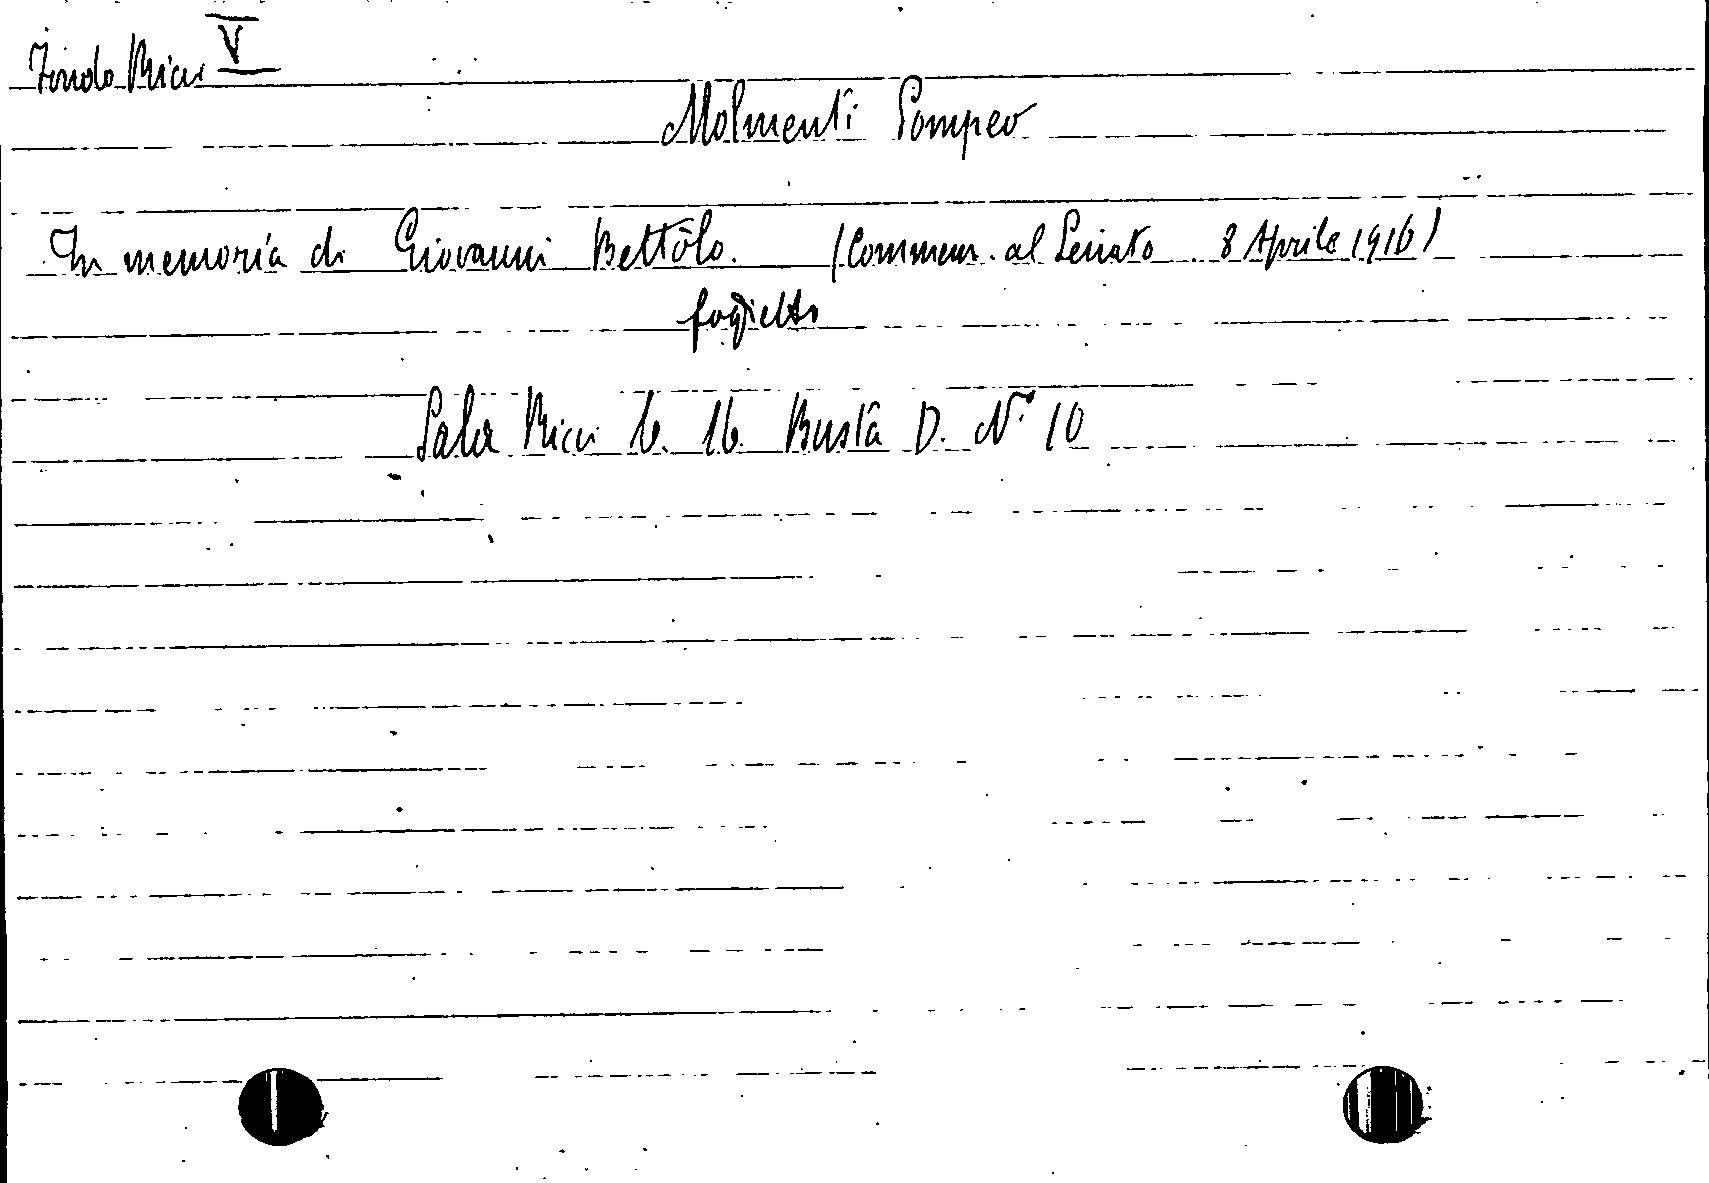 Fondo Ricci V
Molmenti Pompeo
In memoria di Giovanni Bettòlo. (Commem. al Senato 8 Aprile 1916)
foglietto
Sala Ricci 6. 16 Busta D. N° 10